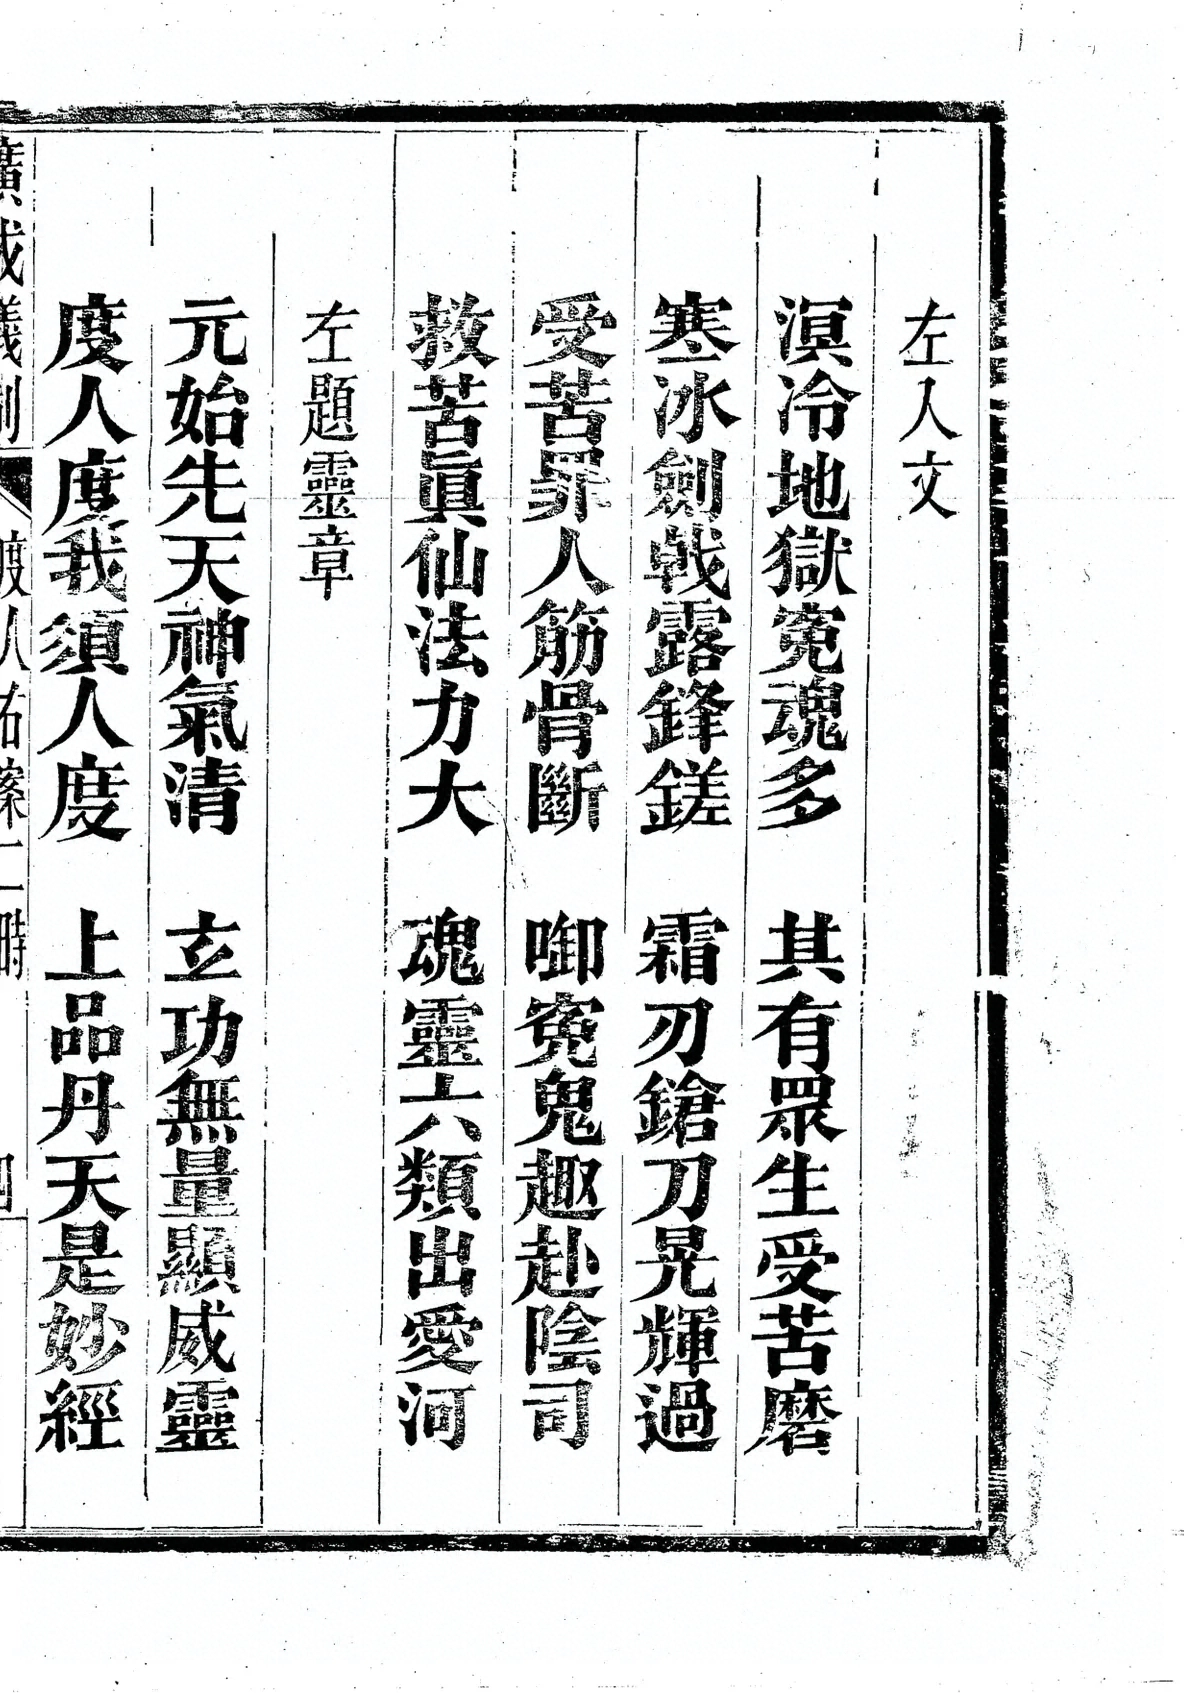 左人文
溟冷地獄寃魂多　其有眾生受苦磨
寒冰劍戟露鋒鎈　霜刃鎗刀晃輝過
受苦罪人筋骨斷　啣寃鬼趣赴陰司
救苦眞仙法力大　魂靈六類出愛河
左題靈章
元始先天神氣清　玄功無量顯威靈
度人度我須人度　上品丹天是妙經
廣成儀制